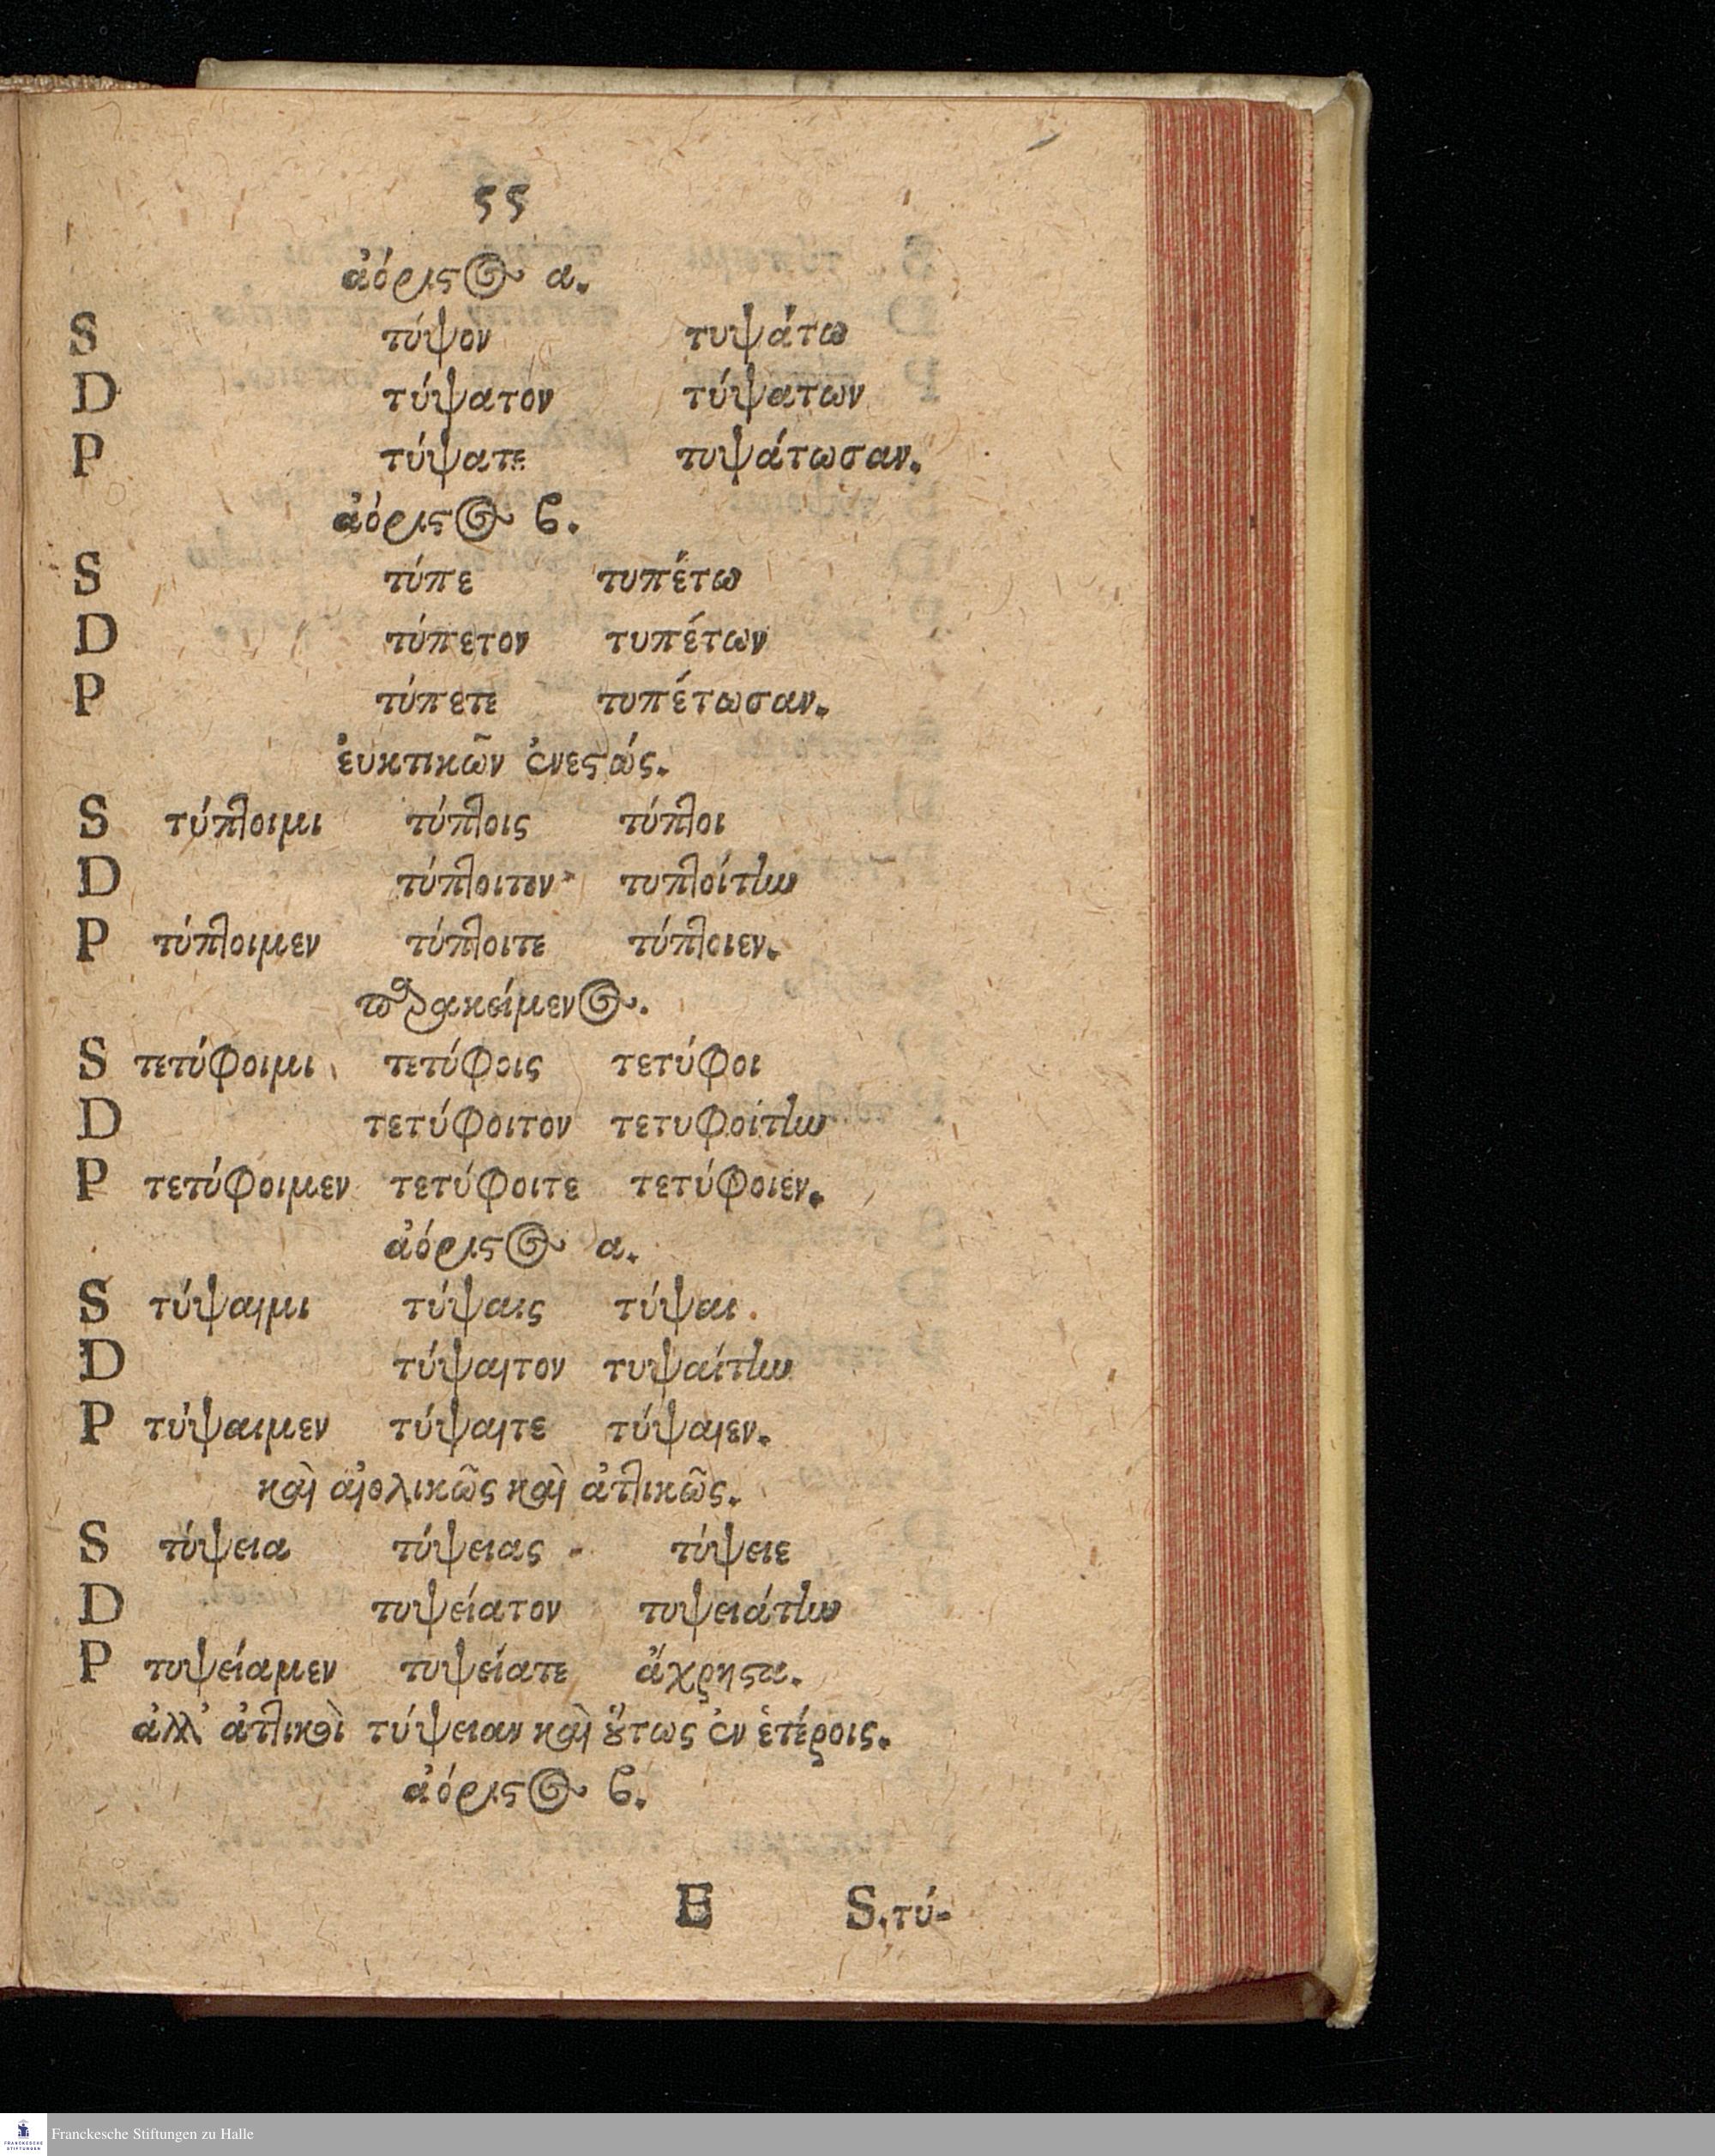 ςς
ἀόριστος α.
S τύψον τυψάτω
D τύψατον τύψατων
P τύψατε τυψάτωσαν.
ἀόριστος ϐ.
S τύπε τυπέτω
D τύπετον τυπέτων
P τύπετε τυπέτωσαν.
ἐυκτικῶν ἐνεστώς.
S τύπτοιμι τύπτοις τύπτοι
D τύπτοιτον τυπτοίτην
P τύπτοιμεν τύπτοιτε τύπτοιεν.
παρακείμενος.
S τετύφοιμι τετύφοις τετύφοι
D τετύφοιτον τετυφοίτην
P τετύφοιμεν τετύφοιτε τετύφοιεν.
ἀόριστος α.
S τύψαιμι τύψαις τύψαι
D τύψαιτον τυψαίτην
P τύψαιμεν τύψαιτε τύψαιεν.
καὶ αἰολικῶς καὶ ἀττικῶς.
S τύψεια τύψειας τύψειε
D τυψείατον τυψειάτην
P τυψείαμεν τυψείατε ἄχρηστα.
ἀλλ' ἀττικοὶ τύψειαν καὶ ὅτως ἐν ἑτέροις.
ἀόριστος ϐ.
E S. τύ-
Franckesche Stiftungen zu Halle
FRANCKESCHE
STIFTUNGEN